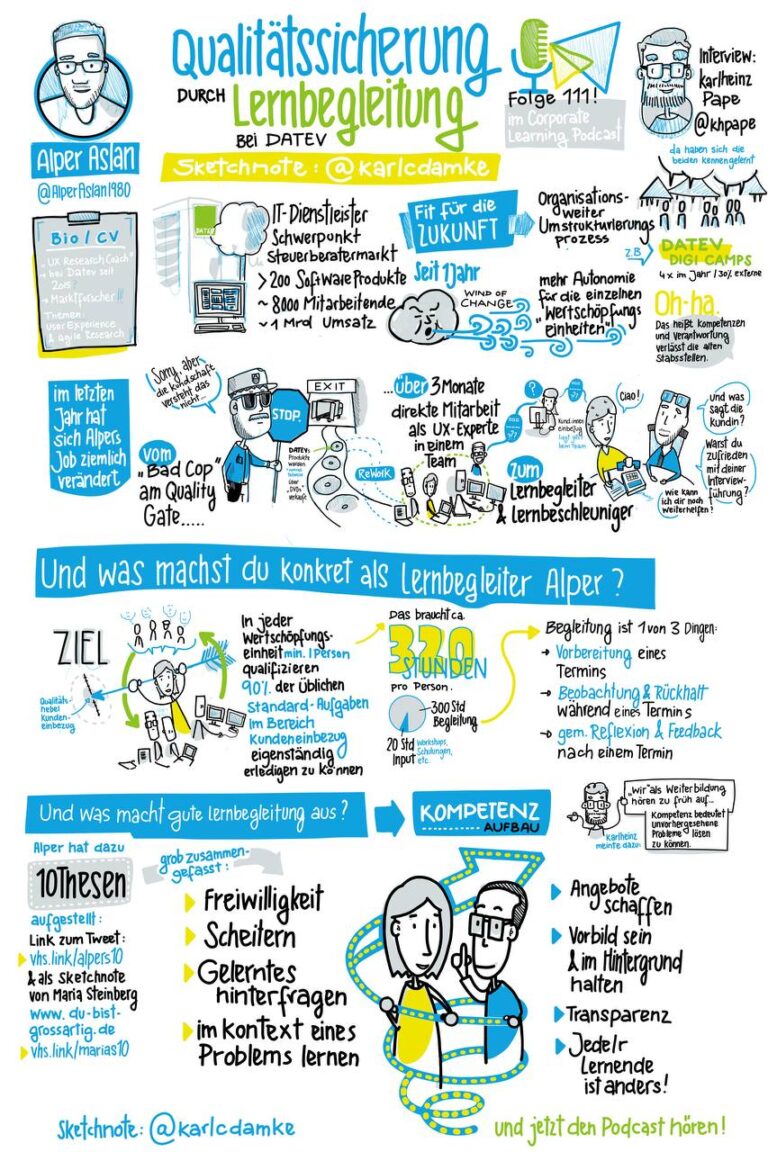 Qualitätssicherung
DURCH Lernbegleitung
BEI DATEV
Sketchnote: @karlcdamke
Alper Aslan
@AlperAslan1980
Folge 111!
im Corporate
Learning Podcast
Interview:
karlheinz
Pape
@khpape
da haben sich die
beiden kennengelernt
Bio / CV
UX Research Coach
bei Datev seit
Marktforscher
Themen:
user Experience
& agile Research
DATEV
IT-Dienstleister
Schwerpunkt
Steuerberatermarkt
>200 Software Produkte
~ 8000 Mitarbeitende
~ 1 Mrd Umsatz
Fit für die
ZUKUNFT
Seit 1 Jahr
WIND OF
CHANGE
Organisations-
weiter
Umstrukturierungs
prozess
z.B.
mehr Autonomie
für die einzelnen
"Wertschöpfungs
einheiten"
DATEV
DIGI CAMPS
4x im Jahr / 30% externe
Oh-ha.
Das heißt Kompetenzen
und Verantwortung
verlässt die alten
Stabsstellen.
im letzten
Jahr hat
sich Alpers
Job ziemlich
verändert
Sorry, aber
die Kundschaft
versteht das
nicht...
STOP.
EXIT
vom
"Bad Cop"
am Quality
Gate.....
DATEV:
Produkte
werden
über
"DVDs"
verkauft
ReWork
...über 3 Monate
direkte Mitarbeit
als UX-Experte
in einem
Team
?
Kund:innen
einbezug
liegt jetzt
beim Team
zum
Lernbegleiter
& Lernbeschleuniger
Ciao!
und was
sagt die
Kundin?
Warst du
zufrieden
mit deiner
Interview-
führung?
Wie kann
ich dir noch
weiterhelfen?
Und was machst du konkret als Lernbegleiter Alper?
ZIEL
Qualitäts-
hebel
Kunden-
einbezug
In jeder
Wertschöpfungs-
einheit min. 1 Person
qualifizieren
90% der Üblichen
Standard-Aufgaben
im Bereich
Kundeneinbezug
eigenständig
erledigen zu können
Das braucht ca.
320
STUNDEN
pro Person.
300 Std
Begleitung
20 Std
Input
Workshops,
Schulungen,
etc.
Begleitung ist 1 von 3 Dingen:
→ Vorbereitung eines
Termins
→ Beobachtung & Rückhalt
während eines Termins
→ gem. Reflexion & Feedback
nach einem Termin
Und was macht gute Lernbegleitung aus?
KOMPETENZ
AUFBAU
"Wir als Weiterbildung,
hören zu früh auf...
Kompetenz bedeutet
unvorhergesehene
Probleme lösen
zu können.
Karlheinz
meinte dazu:
Alper hat dazu
10 Thesen
aufgestellt:
Link zum Tweet:
vhs.link/alpers10
& als Sketchnote
von Maria Steinberg
www.du-bist-
grossartig.de
vhs.link/marias10
grob zusammen-
gefasst:
Freiwilligkeit
Scheitern
Gelerntes
hinterfragen
im Kontext eines
Problems lernen
Angebote
schaffen
Vorbild sein
& im Hintergrund
halten
Transparenz
Jede/r
Lernende
ist anders!
Sketchnote: @karlcdamke
und jetzt den Podcast hören!